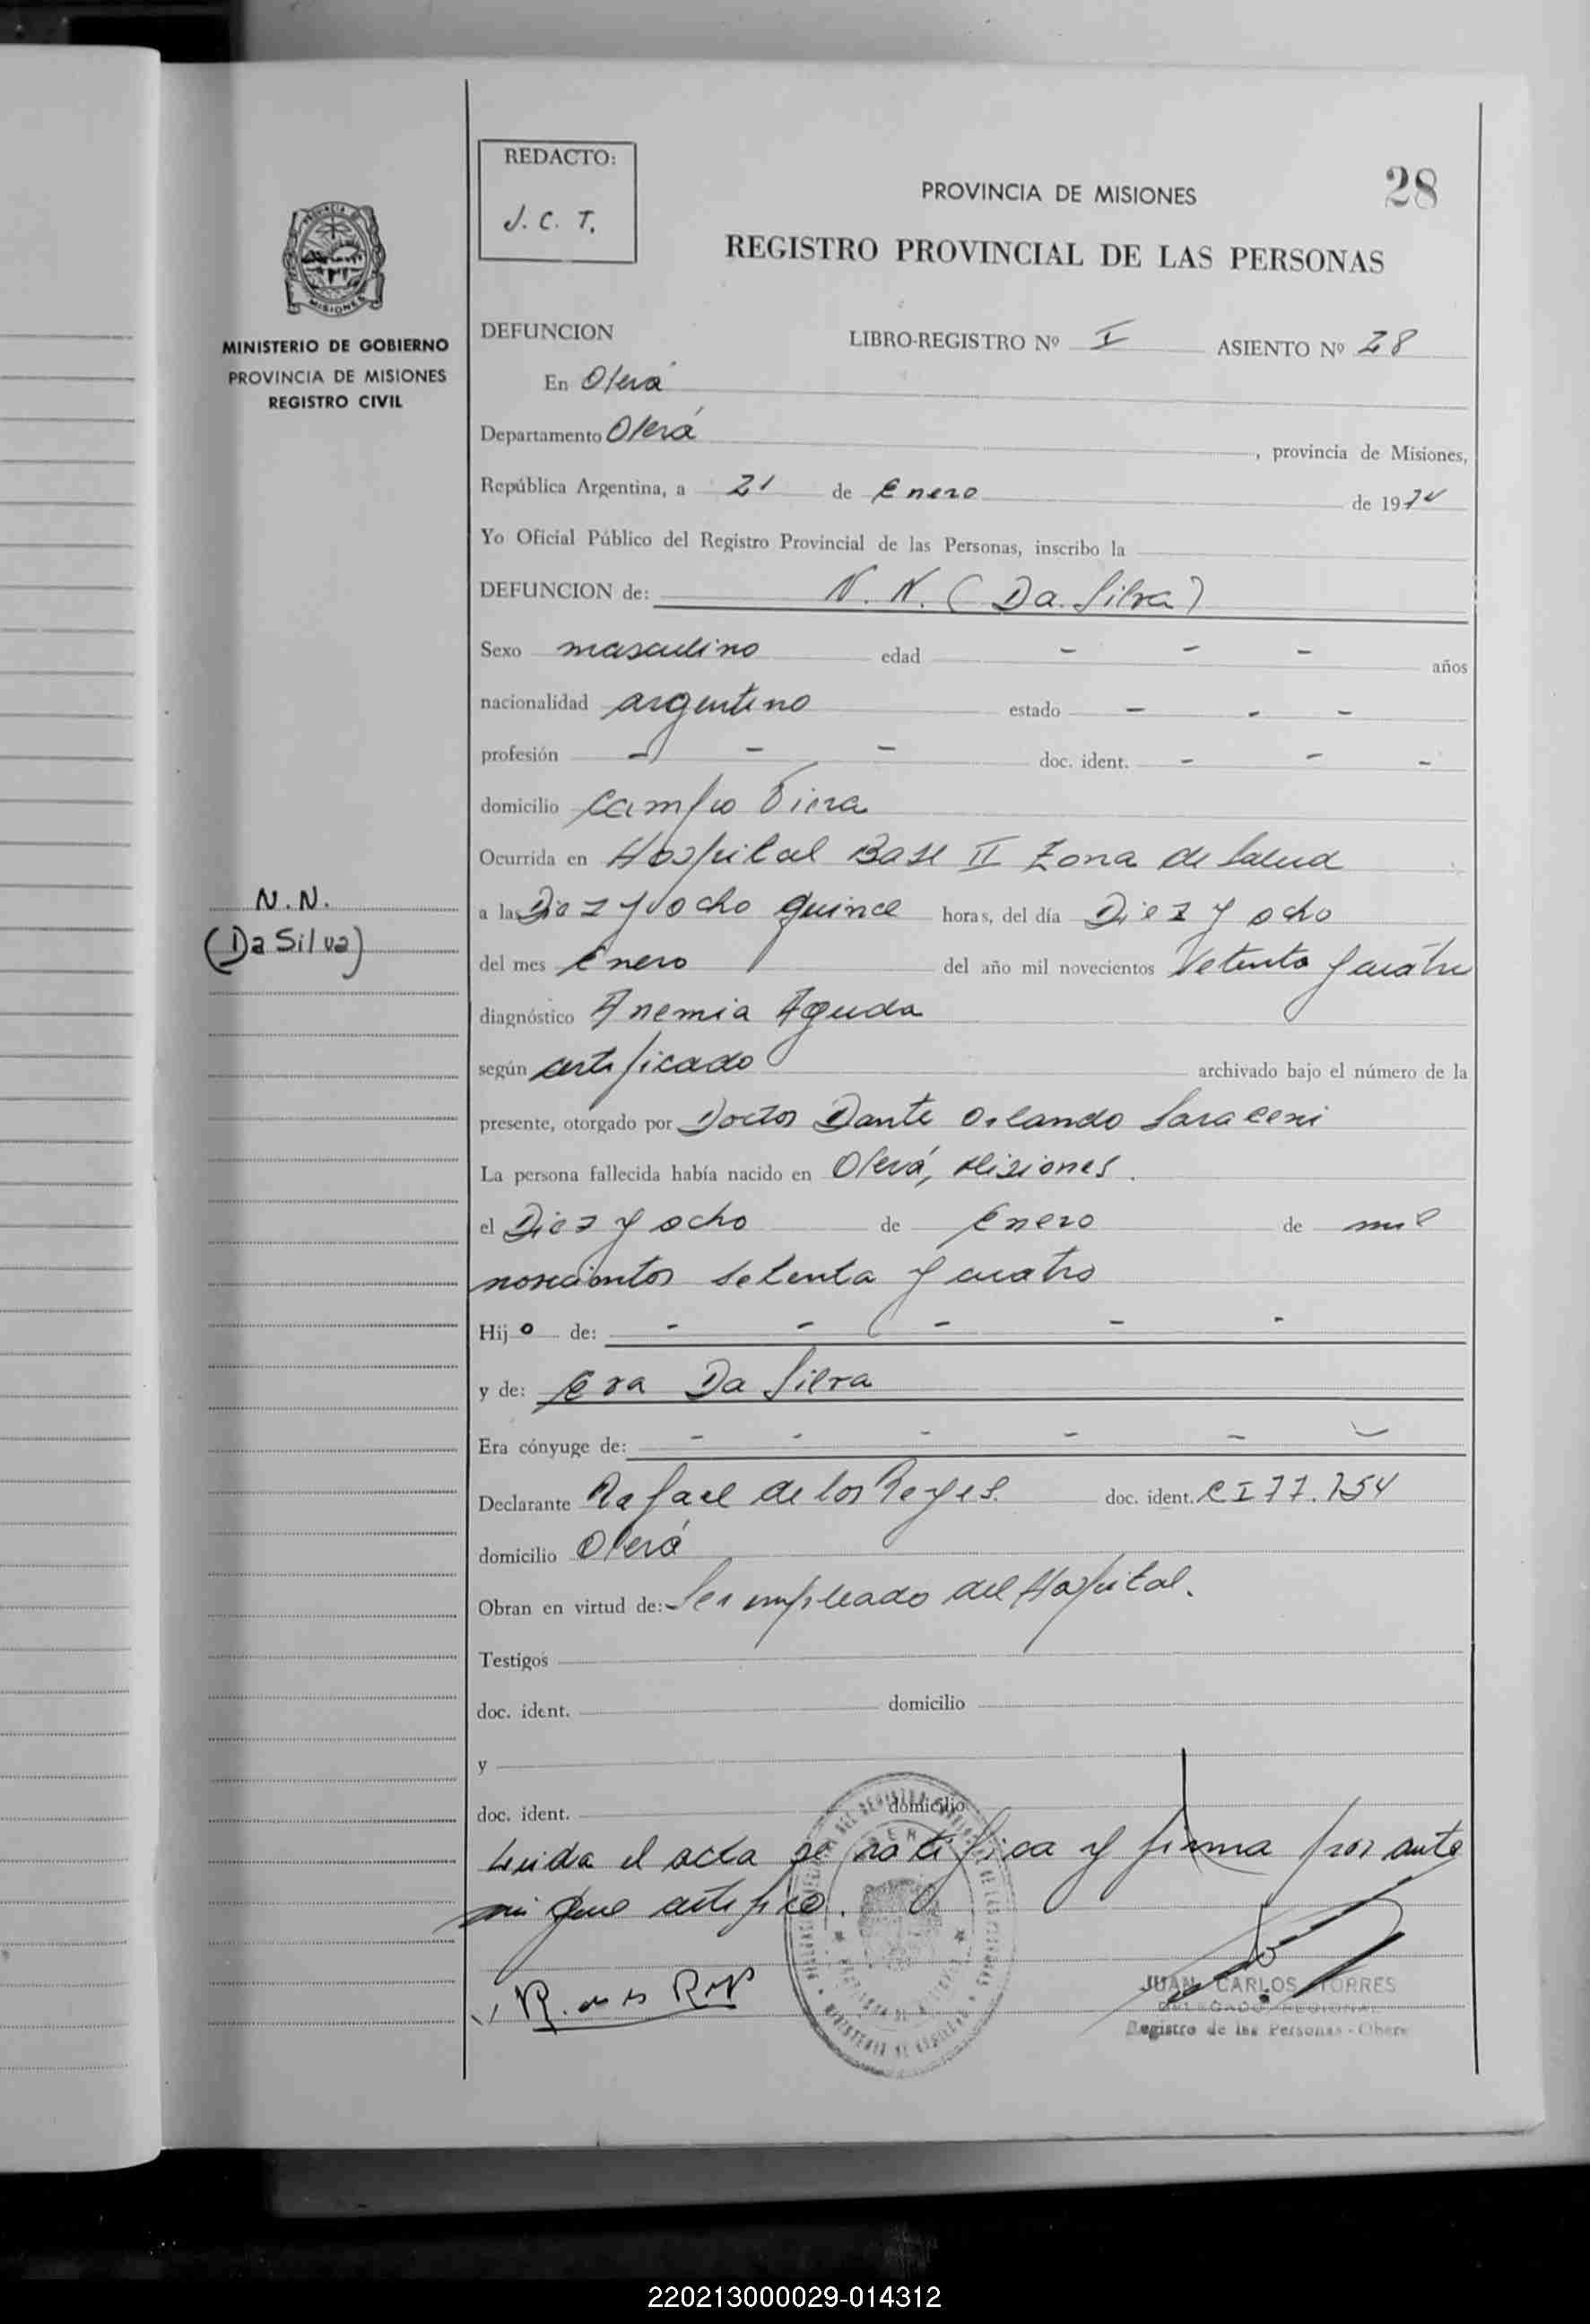 REDACTO:
J. C. T.
PROVINCIA DE MISIONES
28
REGISTRO PROVINCIAL DE LAS PERSONAS
MISIONES
MINISTERIO DE GOBIERNO
PROVINCIA DE MISIONES
REGISTRO CIVIL
DEFUNCION LIBRO-REGISTRO Nº I ASIENTO Nº 28
En Oberá
Departamento Oberá , provincia de Misiones,
República Argentina, a 21 de Enero de 1974
Yo Oficial Público del Registro Provincial de las Personas, inscribo la
DEFUNCION de: N. N. (Da Silva)
Sexo masculino edad - - - años
nacionalidad argentino estado - - -
profesión - - - doc. ident. - - -
domicilio Campo Viera
Ocurrida en Hospital Base II Zona de Salud
N.N.
(Da Silva)
a las Diez y ocho quince horas, del día Diez y ocho
del mes Enero del año mil novecientos Setenta y cuatro
diagnóstico Anemia Aguda
según certificado archivado bajo el número de la
presente, otorgado por Doctor Dante Orlando Saraceni
La persona fallecida había nacido en Oberá, Misiones.
el Diez y ocho de Enero de mil
novecientos setenta y cuatro
Hijo de: - - - - -
y de: Eva Da Silva
Era cónyuge de: - - - - - -
Declarante Rafael de los Reyes. doc. ident. CI 77.754
domicilio Oberá
Obran en virtud de: Ser empleado del Hospital.
Testigos
doc. ident. domicilio
y
doc. ident. domicilio
Leida el acta se ratifica y firma por ante
mi que certifico.
JUAN CARLOS TORRES
DELEGADO REGIONAL
Registro de las Personas - Oberá
220213000029-014312